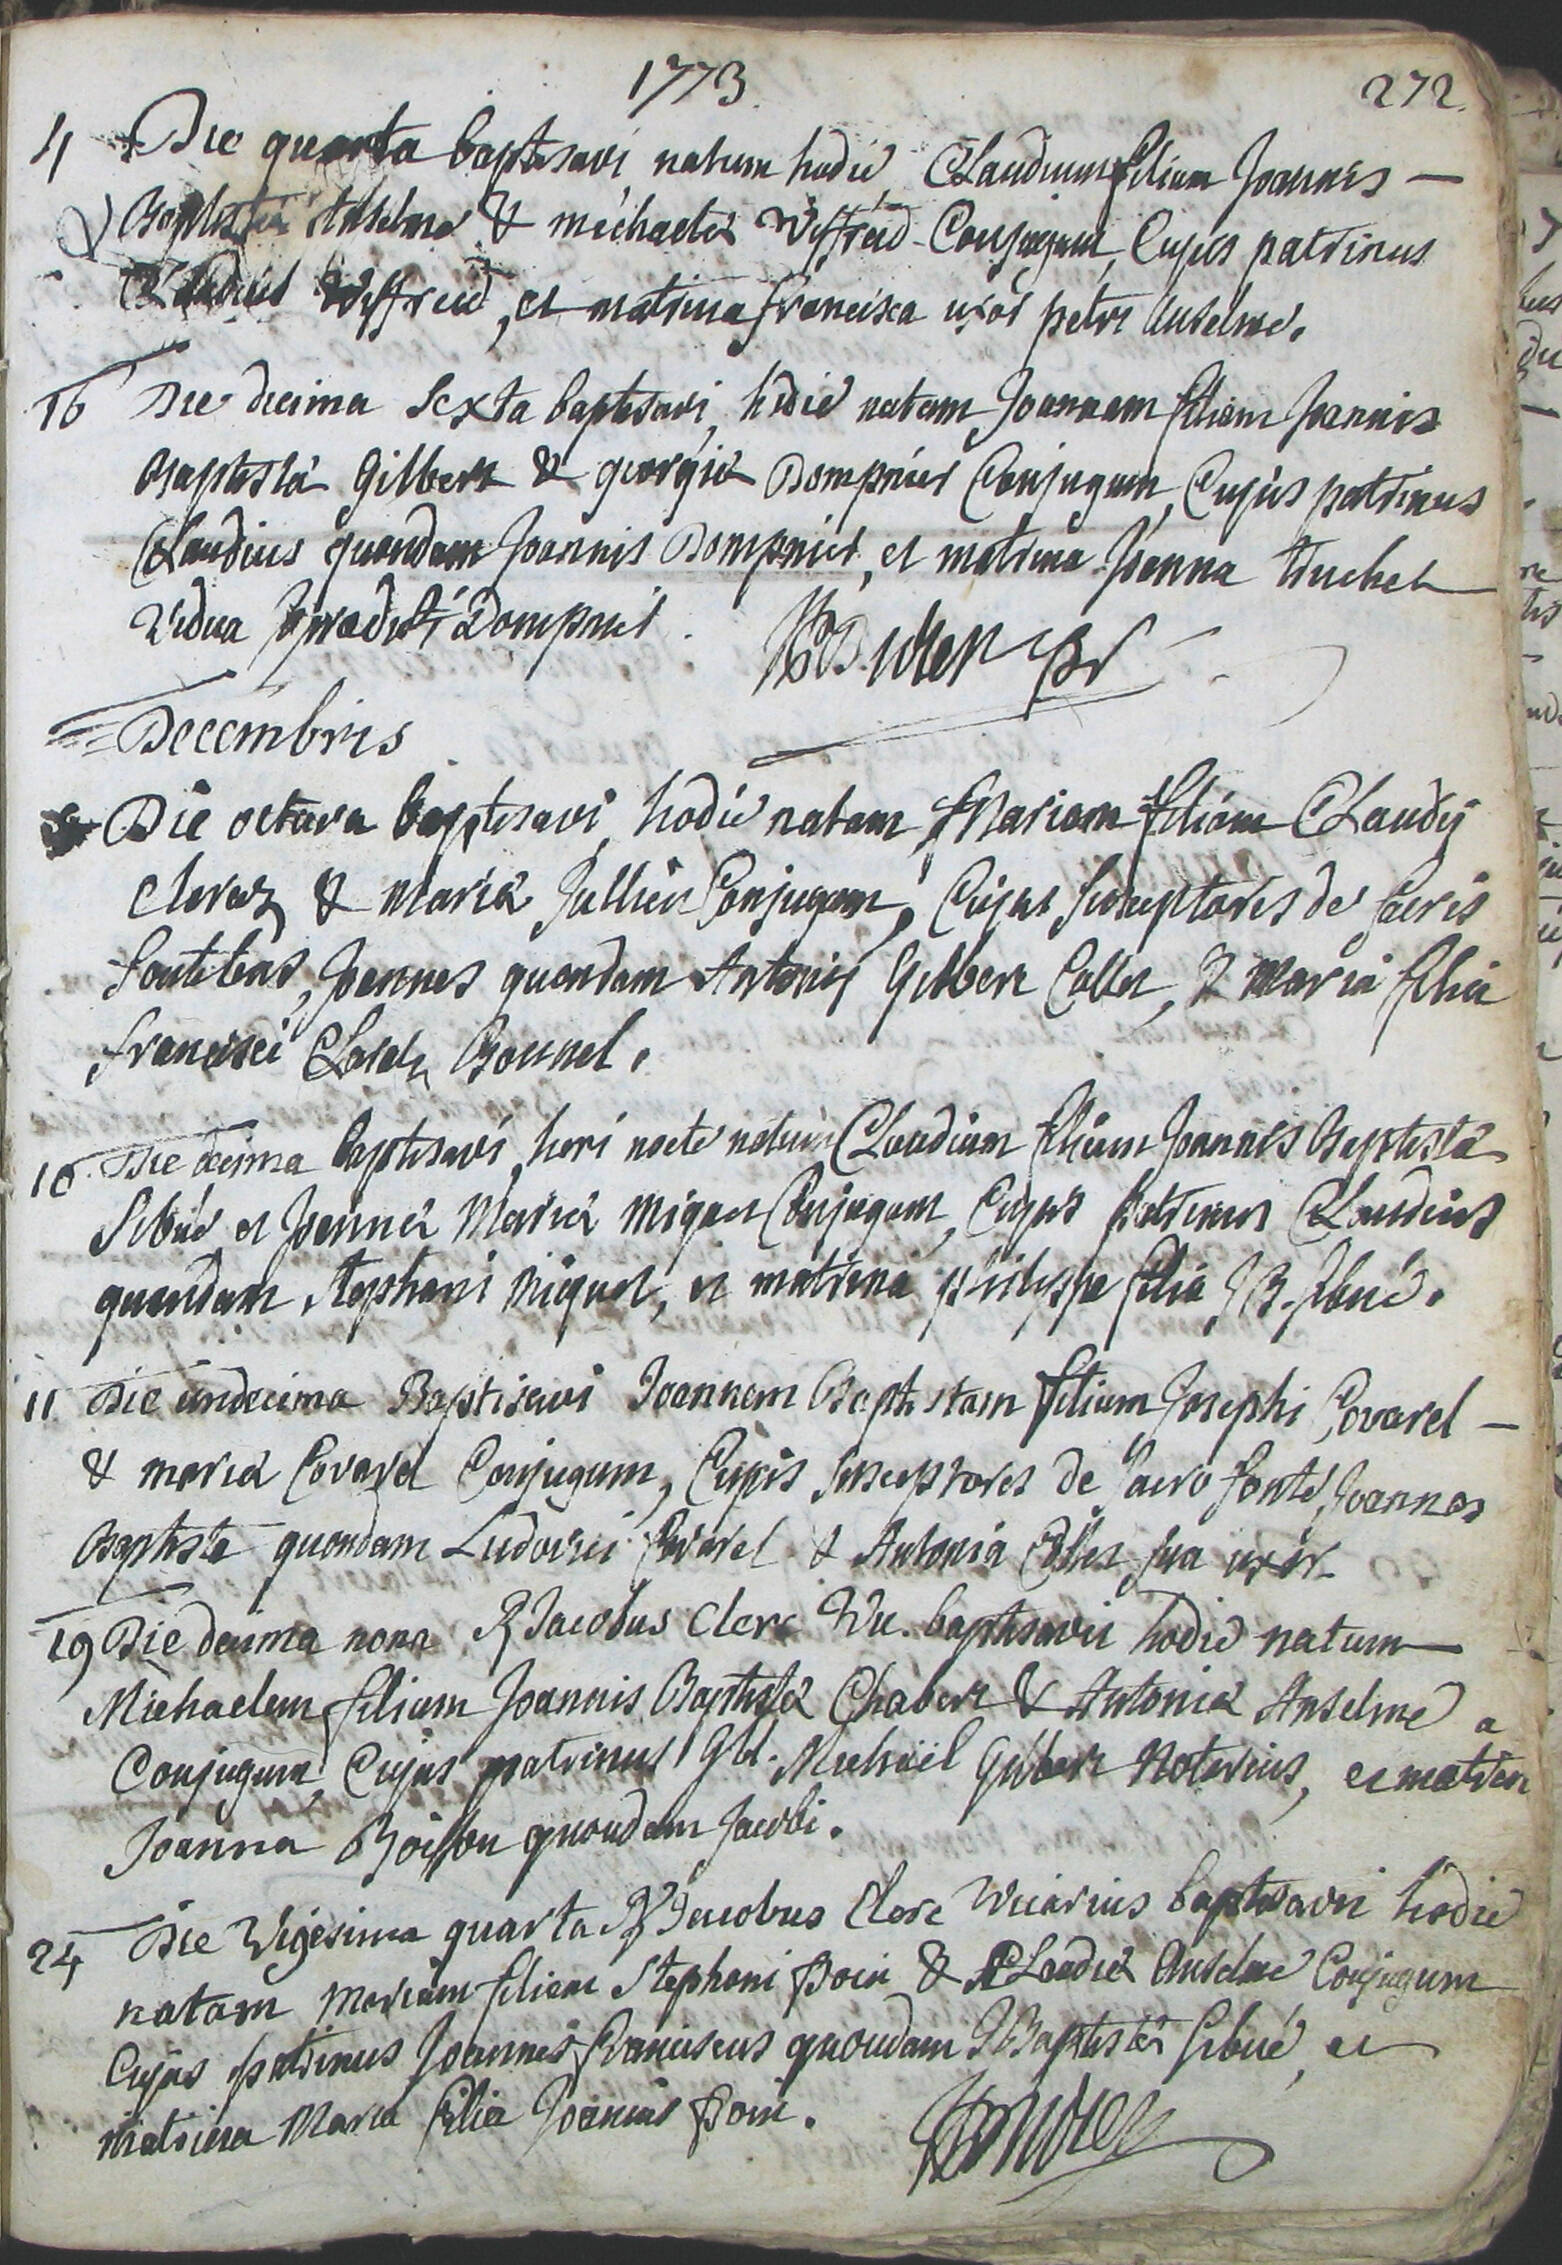 1773.
272.
4 Die quarta baptisavi natum hodie Claudium filium Joannis —
Baptistæ Anselme & michaelæ Viffreid Conjugum, Cujus patrinus
Claudius Viffreid, et matrina francisca uxor petri Anselme.
16 Die decima Sexta baptisavi, hodie natam Joannam filiam Joannis
Baptistæ Gilbert & georgiæ Dompnier Conjugum, Cujus patrinus
Claudius quondam Joannis Dompnier, et matrina Joanna truchet
Vidua prædicti Dompnier.
Decembris
8 Die octava baptisavi, hodie natam Mariam filiam Claudij
Claraz & mariæ Jullien Conjugum, Cujus susceptores de sacris
fontibus, Joannes quondam Antonij Gilbert Collet, & Maria filia
francisci Bonnel.
10 Die decima baptisavi, heri nocte natum Claudium filium Joannis Baptistæ
Sibué et Joannæ Mariæ Miquet Conjugum, Cujus patrinus Claudius
quondam stephani Miquet, et matrina philippa filia J B. sibué.
11 Die undecima Baptisavi Joannem Baptistam filium Josephi Covarel —
& mariæ Covarel Conjugum, Cujus susceptores de sacro fonte, Joannes
Baptista quondam Ludovici Covarel & Antonia Collet sua uxor.
19 Die decima nona R Jacobus Clerc Vic. baptisavit hodie natum
Michaelem filium Joannis Baptistæ Chabert & Antoniæ Anselme
Conjugum, Cujus patrinus Michael Gilbert Notarius, et matrina
Joanna Boisson quondam Jacobi.
24 Die Vigesima quarta R Jacobus Clerc Vicarius baptisavit hodie
natam Mariam filiam Stephani Boin & Claudiæ Anselme Conjugum
Cujus patrinus Joannes franciscus quondam J Baptistæ sibué, et
matrina Maria filia Joannis Boin.